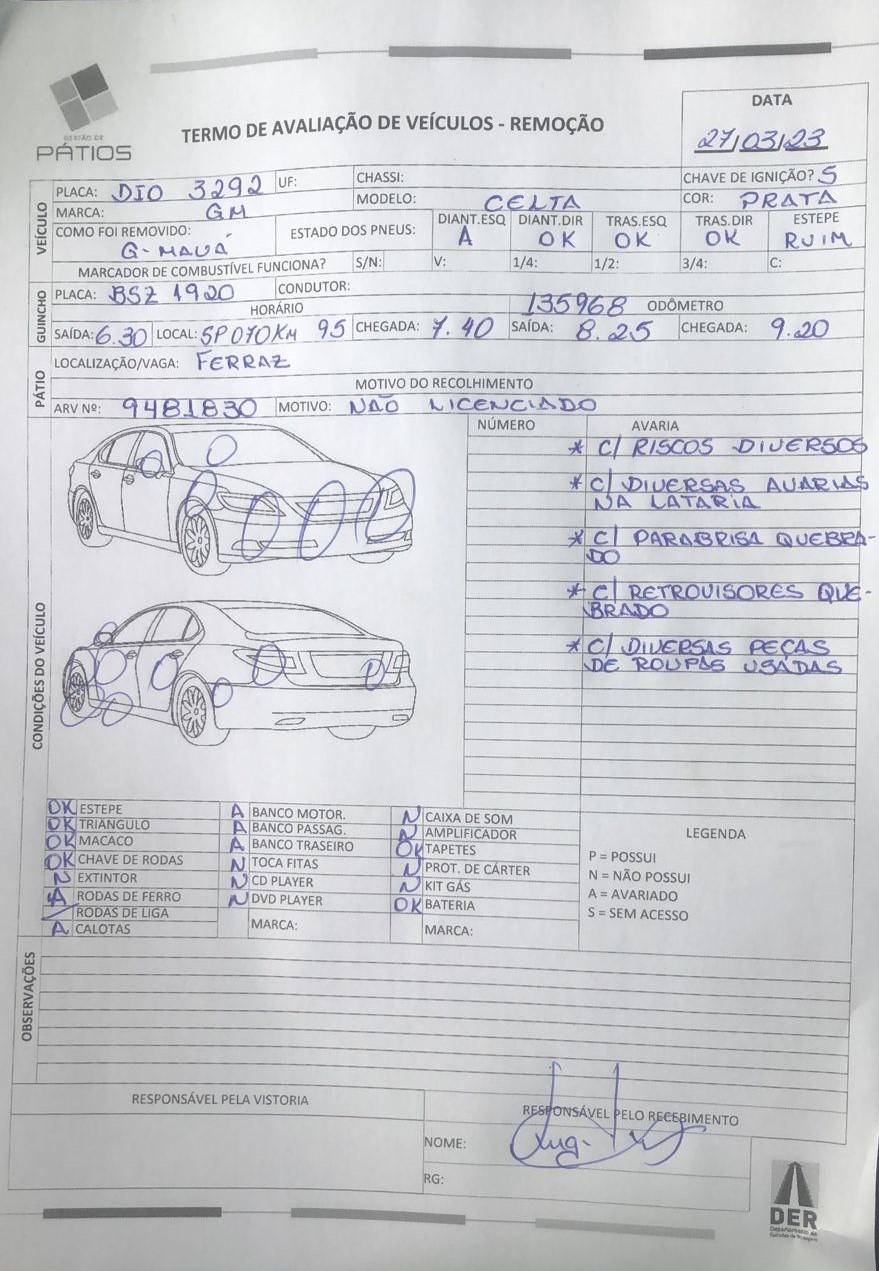 DATA
27/03/23
GESTÃO DE
PÁTIOS
TERMO DE AVALIAÇÃO DE VEÍCULOS - REMOÇÃO
VEÍCULO
PLACA: DIO 3292 UF: CHASSI: CHAVE DE IGNIÇÃO? S
MARCA: GM MODELO: CELTA COR: PRATA
COMO FOI REMOVIDO: ESTADO DOS PNEUS: DIANT.ESQ DIANT.DIR TRAS.ESQ TRAS.DIR ESTEPE
G-MAUÁ A OK OK OK RUIM
MARCADOR DE COMBUSTÍVEL FUNCIONA? S/N: V: 1/4: 1/2: 3/4: C:
GUINCHO
PLACA: BSZ 1920 CONDUTOR:
HORÁRIO 135968 ODÔMETRO
SAÍDA: 6.30 LOCAL: SP 070 KM 95 CHEGADA: 7.40 SAÍDA: 8.25 CHEGADA: 9.20
PÁTIO
LOCALIZAÇÃO/VAGA: FERRAZ
MOTIVO DO RECOLHIMENTO
ARV Nº: 9481830 MOTIVO: NÃO LICENCIADO
CONDIÇÕES DO VEÍCULO
NÚMERO AVARIA
* C/ RISCOS DIVERSOS
* C/ DIVERSAS AVARIAS
NA LATARIA
* C/ PARABRISA QUEBRA-
DO
* C/ RETROVISORES QUE-
BRADO
* C/ DIVERSAS PEÇAS
DE ROUPAS USADAS
OK ESTEPE A BANCO MOTOR. N CAIXA DE SOM
OK TRIANGULO A BANCO PASSAG. N AMPLIFICADOR
OK MACACO A BANCO TRASEIRO OK TAPETES
OK CHAVE DE RODAS N TOCA FITAS N PROT. DE CÁRTER
N EXTINTOR N CD PLAYER N KIT GÁS
A RODAS DE FERRO N DVD PLAYER OK BATERIA
RODAS DE LIGA MARCA: MARCA:
A CALOTAS
LEGENDA
P = POSSUI
N = NÃO POSSUI
A = AVARIADO
S = SEM ACESSO
OBSERVAÇÕES
RESPONSÁVEL PELA VISTORIA
RESPONSÁVEL PELO RECEBIMENTO
NOME:
RG:
DER